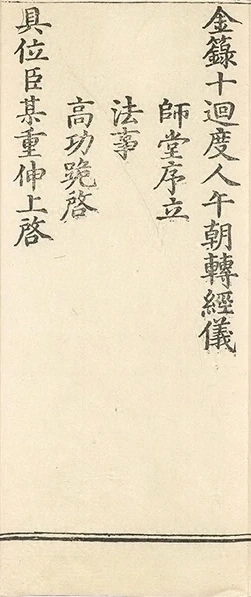 金籙十迴度人午朝轉經儀
師堂序立
法事
高功跪啓
具位臣某重伸上啓